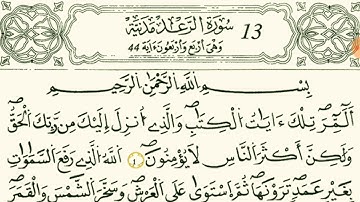 سُورَةُ الرَّعْدِ مَدَنِيَّةٌ 13
وَهْيَ أَرْبَعٌ وَأَرْبَعُونَ ءَايَةً 44
بِسْمِ اللَّهِ الرَّحْمَٰنِ الرَّحِيمِ
أَلَٓمِّٓرۖ تِلْكَ ءَايَٰتُ الْكِتَٰبِۖ وَالَّذِےٓ أُنزِلَ إِلَيْكَ مِن رَّبِّكَ الْحَقُّۖ
وَلَٰكِنَّ أَكْثَرَ النَّاسِ لَا يُؤْمِنُونَۖ ١ اَللَّهُ الَّذِے رَفَعَ السَّمَٰوَٰتِ
بِغَيْرِ عَمَدٖ تَرَوْنَهَاۖ ثُمَّ اَسْتَوَىٰ عَلَى الْعَرْشِۖ وَسَخَّرَ الشَّمْسَ وَالْقَمَرَۖ